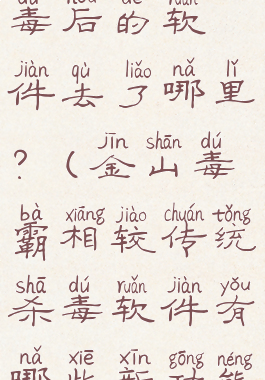 dú hòu de ruǎn
毒后的软
jiàn qù liǎo nǎ lǐ
件去了哪里
jīn shān dú
？（金山毒
bà xiāng jiào chuán tǒng
霸相较传统
shā dú ruǎn jiàn yǒu
杀毒软件有
nǎ xiē xīn gōng néng
哪些新功能